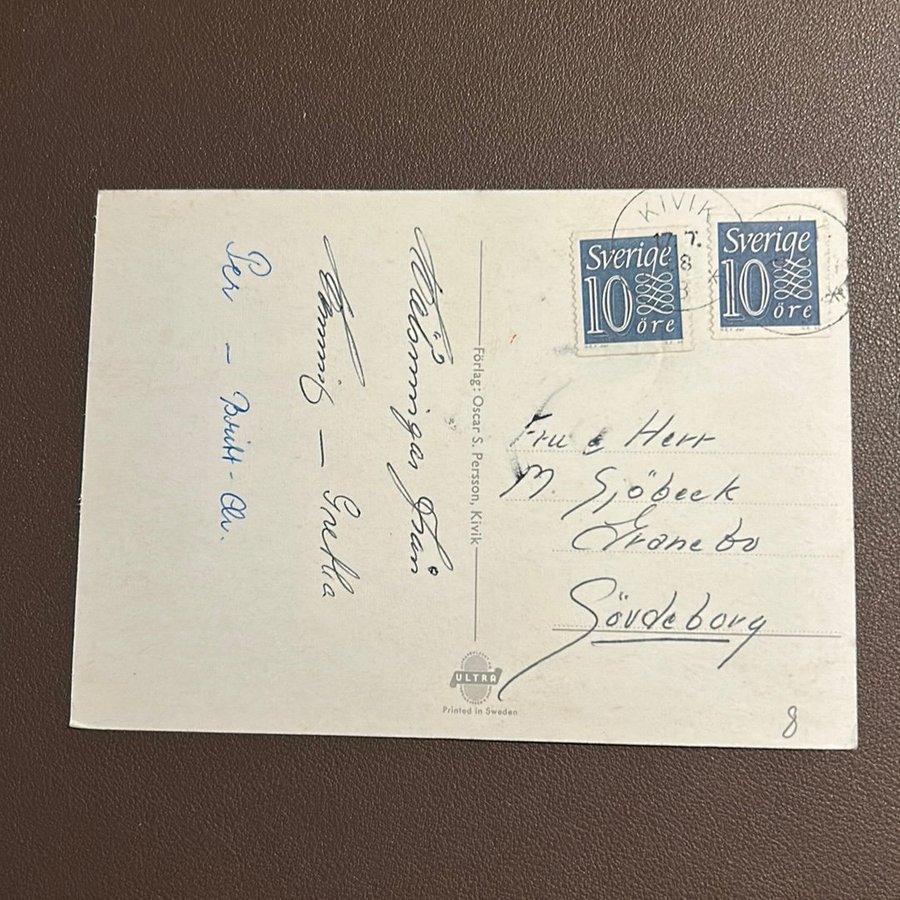 Hälsningar från
Hennis - Gretha
Per - Britt-Ol.
Förlag: Oscar S. Persson, Kivik
ULTRA
Printed in Sweden
KIVIK
17.7.
8
Sverige
10
öre
Sverige
10
öre
Fru & Herr
M. Sjöbeck
Granebo
Sövdeborg
8